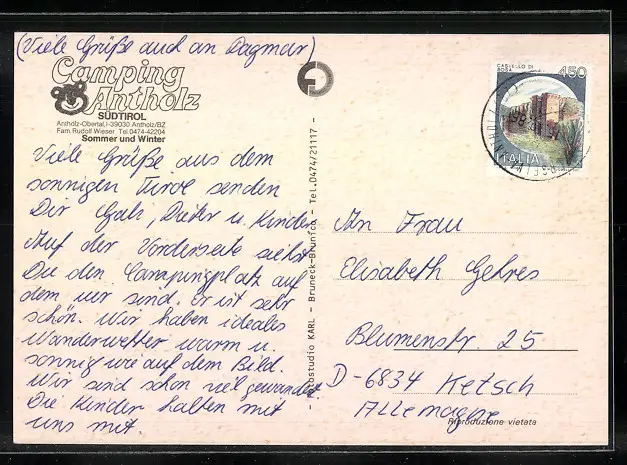 (Viele Grüße auch an Dagmar)
Camping
Antholz
SÜDTIROL
Antholz-Obertal, I-39030 Antholz/BZ
Fam. Rudolf Wieser Tel. 0474-42204
Sommer und Winter
Viele Grüße aus dem
sonnigen Tirol senden
Dir Gabi, Dieter u. Kinder
Auf der Vorderseite siehst
Du den Campingplatz auf
dem wir sind. Er ist sehr
schön. Wir haben ideales
Wanderwetter warm u.
sonnig wie auf dem Bild.
Wir sind schon viel gewandert.
Die Kinder halten mit
uns mit.
- Fotostudio KARL - Bruneck-Brunico - Tel. 0474/21117 -
CASTELLO DI
450
ITALIA
An Frau
Elisabeth Gehres
Blumenstr. 25
D-6834 Ketsch
Allemagne
Riproduzione vietata